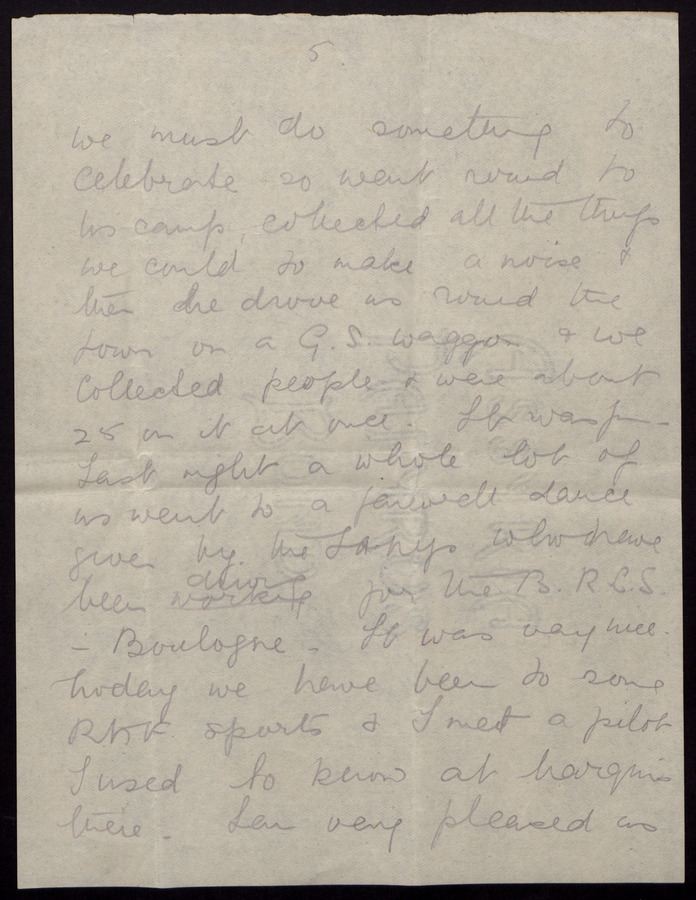 5.
we must do something to
celebrate so went round to
his camp, collected all the things
we could to make a noise &
then he drove us round the
town on a G.S. waggon & we
collected people & were about
25 on it at once. It was fun -
Last night a whole lot of
us went to a farewell dance
given by the Fanys who have
been working driving for the B.R.C.S.
- Boulogne - It was very nice.
Today we have been to some
sports & I met a pilot
I used to know at
there - very pleased as